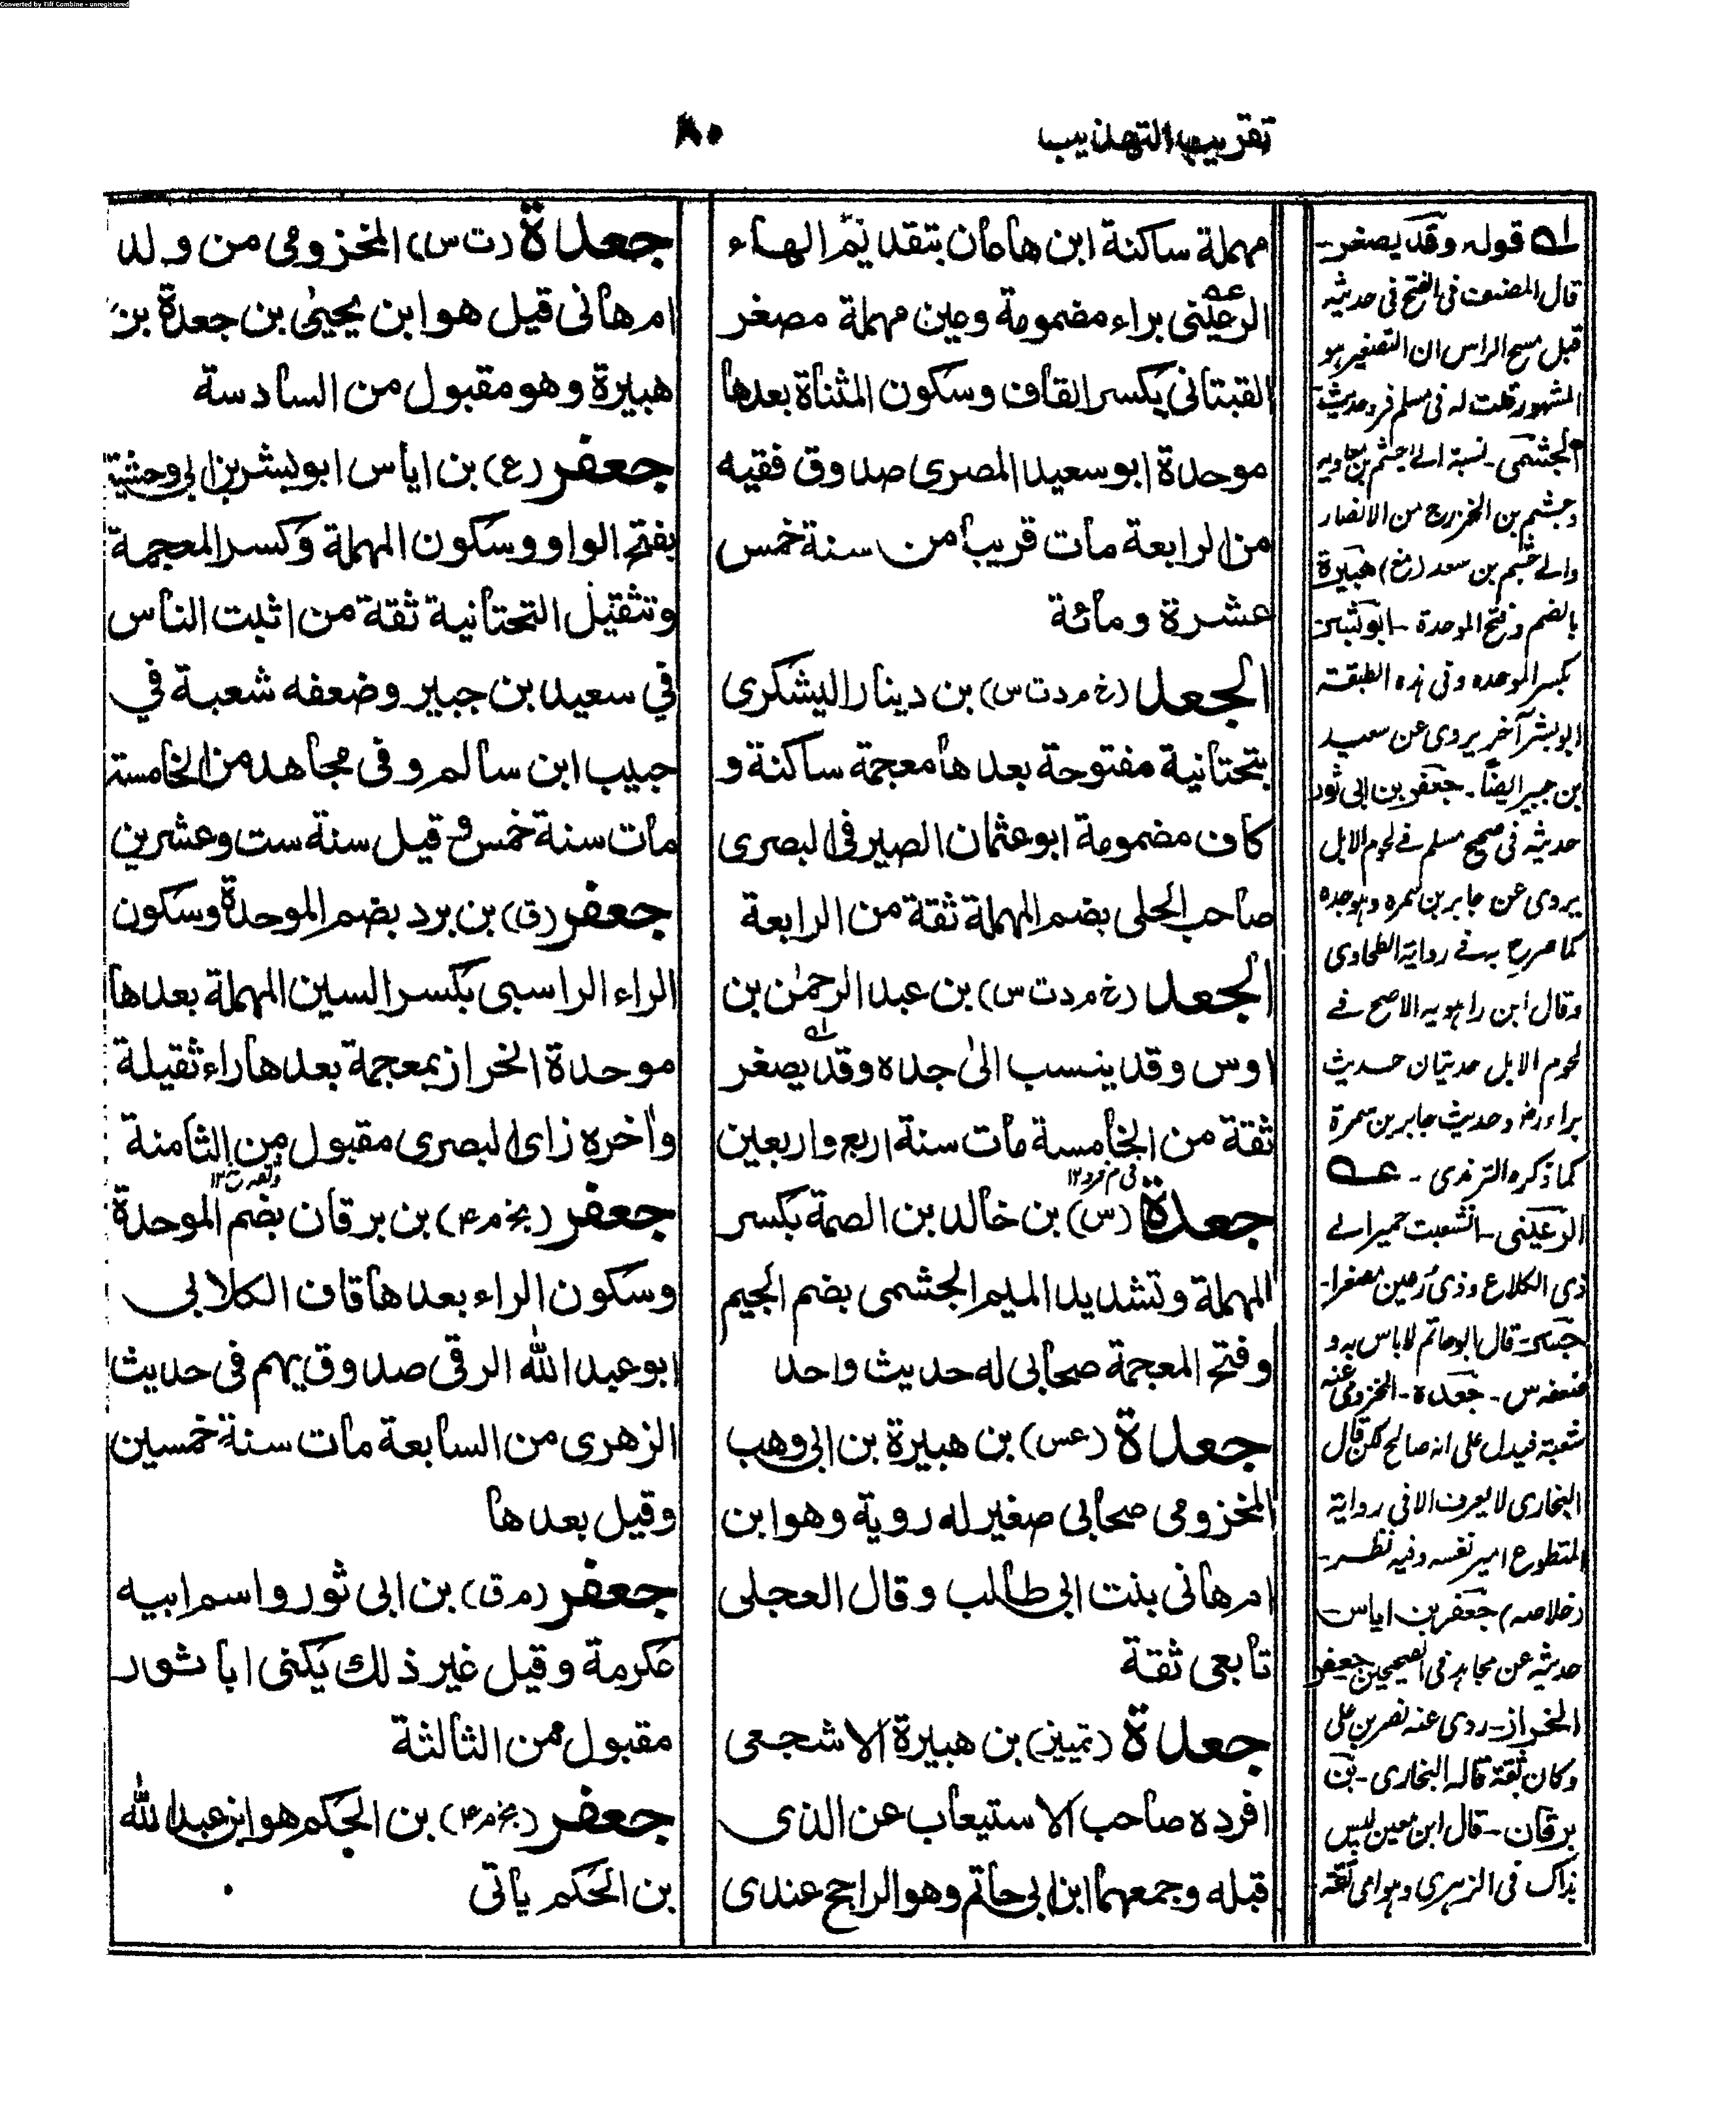 Converted by Tiff Combine - unregistered
تقريب التهذيب
٨٠
مهملة ساكنة ابن هاعان بتقديم الهاء
الرعينى براء مضمومة وعين مهملة مصغر
القتبانى بكسر القاف وسكون المثناة بعدها
موحدة ابو سعيد المصرى صدوق فقيه
من الرابعة مات قريبا من سنة خمس
عشرة ومائة
الجعد (خ م د ت س) بن دينار اليشكرى
بتحتانية مفتوحة بعدها معجمة ساكنة و
كاف مضمومة ابو عثمان الصيرفى البصرى
صاحب الحلى بضم المهملة ثقة من الرابعة
الجعد (خ م د ت س) بن عبد الرحمٰن بن
اوس وقد ينسب الىٰ جده وقد يصغر
ثقة من الخامسة مات سنة اربع واربعين
جعدة (س) بن خالد بن الصمة بكسر
المهملة وتشديد الميم الجشمى بضم الجيم
وفتح المعجمة صحابى له حديث واحد
جعدة (عس) بن هبيرة بن ابى وهب
المخزومى صحابى صغير له روية وهو ابن
ام هانى بنت ابى طالب وقال العجلى
تابعى ثقة
جعدة (تمييز) بن هبيرة الاشجعى
افرده صاحب الاستيعاب عن الذى
قبله وجمعهما ابن ابى حاتم وهو الراجح عندى
جعدة (ت س) المخزومى من ولد
ام هانى قيل هو ابن يحيىٰ بن جعدة بن
هبيرة وهو مقبول من السادسة
جعفر (ع) بن اياس ابو بشر بن ابى وحشية
بفتح الواو وسكون المهملة وكسر المعجمة
وتثقيل التحتانية ثقة من اثبت الناس
في سعيد بن جبير وضعفه شعبة في
حبيب ابن سالم وفى مجاهد من الخامسة
مات سنة خمس وقيل سنة ست وعشرين
جعفر (ق) بن برد بضم الموحدة وسكون
الراء الراسبى بكسر السين المهملة بعدها
موحدة الخراز بمعجمة بعدها راء ثقيلة
واخره زاى البصرى مقبول من الثامنة
جعفر (بخ م ۴) بن برقان بضم الموحدة
وسكون الراء بعدها قاف الكلابى
ابو عبد الله الرقى صدوق يهم فى حديث
الزهرى من السابعة مات سنة خمسين
وقيل بعدها
جعفر (م ق) بن ابى ثور واسم ابيه
عكرمة وقيل غير ذلك يكنى ابا ثور
مقبول من الثالثة
جعفر (بخ م ۴) بن الحكم هو ابن عبد الله
بن الحكم ياتى
له قوله وقد يصغر-
قال المصنف فى الفتح فى حديثه
قبل مسح الراس ان التصغير هو
المشهور قلت له فى مسلم فرد حديث
الجشمى - نسبة الے جشم بن معاويه
وجشم بن الخزرج من الانصار
والے جشم بن سعد (مغ) هبيرة
بالضم وفتح الموحدة - ابو بشر
بكسر الموحده وفى هذه الطبقة
ابو بشر آخر يروى عن سعيد
بن جبير ايضا - جعفر بن ابى ثور
حديثه فى صحيح مسلم فے لحوم الابل
يروى عن جابر بن سمره وهو جده
كما صرح به فے رواية الطحاوى
وقال ابن راهويه الاصح فے
لحوم الابل حديثان حديث
براء رض وحديث جابر بن سمرة
كما ذكره الترمذى - عه
الرعينى - انشعبت حمير الے
ذى الكلاع وذى رعين مصغرا-
قال ابو حاتم لا باس به و
ضعفه س - جعدة - المخزومى عنه
شعبة فيدل على انه صالح لكن قال
البخارى لا يعرف الا فى رواية
المتطوع امير نفسه وفيه نظر-
(خلاصه) جعفر بن اياس
حديثه عن مجاهد فى الصحيحين جعفر
الخراز - روى عنه نصر بن على
وكان ثقة قاله البخارى - بن
برقان - قال ابن معين ليس
بذاك فى الزهرى وهو امى ثقة